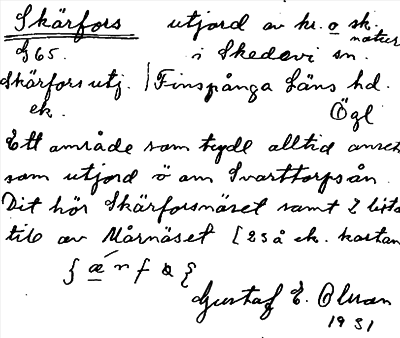 Skärfors utjord av kr. o sk.
natur
S 65. i Skedevi sn.
Skärfors utj. Finspånga Läns hd.
ek. Ögl
Ett område som tydl alltid ansetts
som utjord ö om Svarttorpsån.
Dit hör Skärforsnäset samt 2 lista
till av Mårnäset [25 å ek. kartan
Gustaf E. Olsson
1931